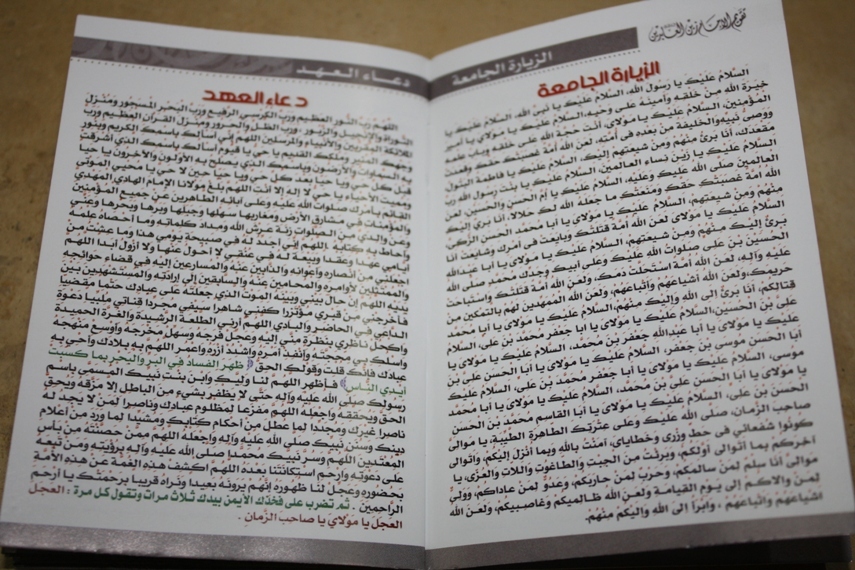 تقويم الإمام زين العابدين
الزيارة الجامعة
الزيارة الجامعة
السلام عليك يا رسول الله، السلام عليك يا نبي الله، السلام عليك يا
خيرة الله من خلقه وأمينه على وحيه، السلام عليك يا مولاي يا أمير
المؤمنين، السلام عليك يا مولاي، أنت حجة الله على خلقه وباب علمه
ووصي نبيه والخليفة من بعده في أمته، لعن الله أمة غصبتك حقك وقعدت
مقعدك، أنا بريء منهم ومن شيعتهم إليك، السلام عليك يا فاطمة البتول
السلام عليك يا زين نساء العالمين، السلام عليك يا بنت رسول الله رب
العالمين صلى الله عليك وعليه، السلام عليك يا أم الحسن والحسين، لعن
الله أمة غصبتك حقك ومنعتك ما جعله الله لك حلالا، أنا بريء إليك
منهم ومن شيعتهم، السلام عليك يا مولاي يا أبا محمد الحسن الزكي
السلام عليك يا مولاي لعن الله أمة قتلتك وبايعت في أمرك وشايعت أنا
بريء إليك منهم ومن شيعتهم، السلام عليك يا مولاي يا أبا عبدالله
الحسين بن علي صلوات الله عليك وعلى أبيك وجدك محمد صلى الله
عليه وآله، لعن الله أمة استحلت دمك، ولعن الله أمة قتلتك واستباحت
حريمك، ولعن الله أشياعهم وأتباعهم، ولعن الله الممهدين لهم بالتمكين من
قتالكم، أنا بريء إلى الله وإليك منهم، السلام عليك يا مولاي يا أبا محمد
علي بن الحسين، السلام عليك يا مولاي يا أبا جعفر محمد بن علي، السلام
عليك يا مولاي يا أبا عبدالله جعفر بن محمد، السلام عليك يا مولاي يا
أبا الحسن موسى بن جعفر، السلام عليك يا مولاي يا أبا الحسن علي بن
موسى، السلام عليك يا مولاي يا أبا جعفر محمد بن علي، السلام عليك
يا مولاي يا أبا الحسن علي بن محمد، السلام عليك يا مولاي يا أبا محمد
الحسن بن علي، السلام عليك يا مولاي يا أبا القاسم محمد بن الحسن
صاحب الزمان، صلى الله عليك وعلى عترتك الطاهرة الطيبة، يا موالي
كونوا شفعائي في حط وزري وخطاياي، آمنت بالله وبما أنزل إليكم، وأتوالى
آخركم بما أتوالى أولكم، وبرئت من الجبت والطاغوت واللات والعزى، يا
موالي أنا سلم لمن سالمكم، وحرب لمن حاربكم، وعدو لمن عاداكم، وولي
لمن والاكم إلى يوم القيامة ولعن الله ظالميكم وغاصبيكم، ولعن الله
أشياعهم وأتباعهم، وأبرأ إلى الله وإليكم منهم.
دعاء العهد
دعاء العهد
اللهم رب النور العظيم ورب الكرسي الرفيع ورب البحر المسجور ومنزل
التوراة والإنجيل والزبور، ورب الظل والحرور ومنزل القرآن العظيم ورب
الملائكة المقربين والأنبياء والمرسلين اللهم إني أسألك باسمك الكريم وبنور
وجهك المنير وملكك القديم يا حي يا قيوم أسألك باسمك الذي أشرقت
به السماوات والأرضون وباسمك الذي يصلح به الأولون والآخرون يا حيا
قبل كل حي ويا حيا بعد كل حي ويا حيا حين لا حي يا محيي الموتى
ومميت الأحياء يا حي لا إله إلا أنت اللهم بلغ مولانا الإمام الهادي المهدي
القائم بأمرك صلوات الله عليه وعلى آبائه الطاهرين عن جميع المؤمنين
والمؤمنات في مشارق الأرض ومغاربها سهلها وجبلها وبرها وبحرها وعني
وعن والدي من الصلوات زنة عرش الله ومداد كلماته وما أحصاه علمه
وأحاط به كتابه. اللهم إني أجدد له في صبيحة يومي هذا وما عشت من
أيامي عهدا وعقدا وبيعة له في عنقي لا أحول عنها ولا أزول أبدا اللهم
اجعلني من أنصاره وأعوانه والذابين عنه والمسارعين إليه في قضاء حوائجه
والممتثلين لأوامره والمحامين عنه والسابقين إلى إرادته والمستشهدين بين
يديه اللهم إن حال بيني وبينه الموت الذي جعلته على عبادك حتما مقضيا
فأخرجني من قبري مؤتزرا كفني شاهرا سيفي مجردا قناتي ملبيا دعوة
الداعي في الحاضر والبادي اللهم أرني الطلعة الرشيدة والغرة الحميدة
واكحل ناظري بنظرة مني إليه وعجل فرجه وسهل مخرجه وأوسع منهجه
واسلك بي محجته وأنفذ أمره واشدد أزره واعمر اللهم به بلادك وأحي به
عبادك فإنك قلت وقولك الحق ﴿ظهر الفساد في البر والبحر بما كسبت
أيدي الناس﴾ فأظهر اللهم لنا وليك وابن بنت نبيك المسمى باسم
رسولك صلى الله عليه وآله حتى لا يظفر بشيء من الباطل إلا مزقه ويحق
الحق ويحققه واجعله اللهم مفزعا لمظلوم عبادك وناصرا لمن لا يجد له
ناصرا غيرك ومجددا لما عطل من أحكام كتابك ومشيدا لما ورد من أعلام
دينك وسنن نبيك صلى الله عليه وآله واجعله اللهم ممن حصنته من بأس
المعتدين اللهم وسر نبيك محمدا صلى الله عليه وآله برؤيته ومن تبعه
على دعوته وارحم استكانتنا بعده اللهم اكشف هذه الغمة عن هذه الأمة
بحضوره وعجل لنا ظهوره إنهم يرونه بعيدا ونراه قريبا برحمتك يا أرحم
الراحمين. ثم تضرب على فخذك الأيمن بيدك ثلاث مرات وتقول كل مرة: العجل
العجل يا مولاي يا صاحب الزمان.